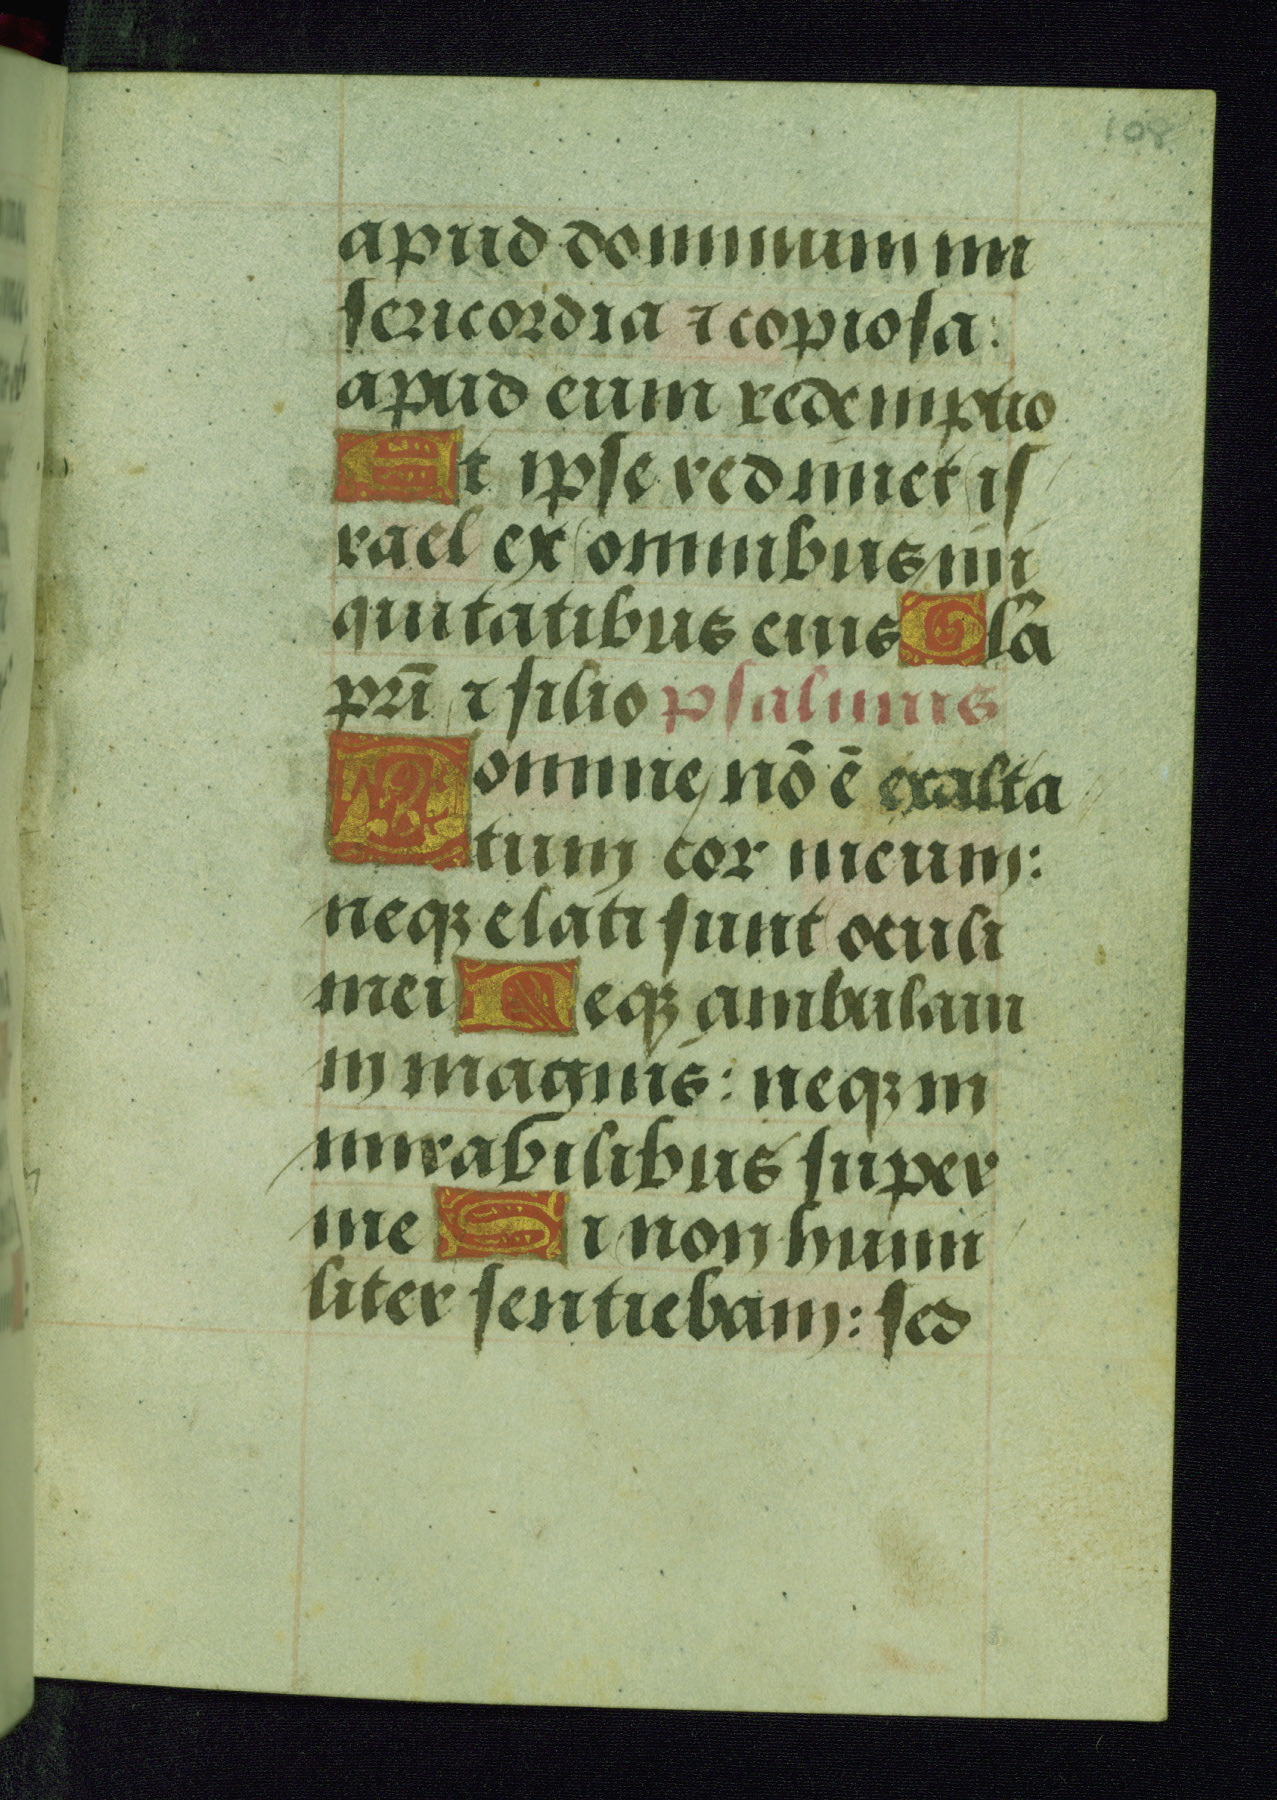 108
apud dominum mi
sericordia ⁊ copiosa:
apud eum redemptio
Et ipse redimet is
rael ex omnibus ini
quitatibus eius Gła
pri̅ ⁊ filio psalmus
Domine nō ē exalta
tum cor meum:
neqꝫ elati sunt oculi
mei Neqꝫ ambulaui
in magnis: neqꝫ in
mirabilibus super
me Si non humi
liter sentiebam: sed